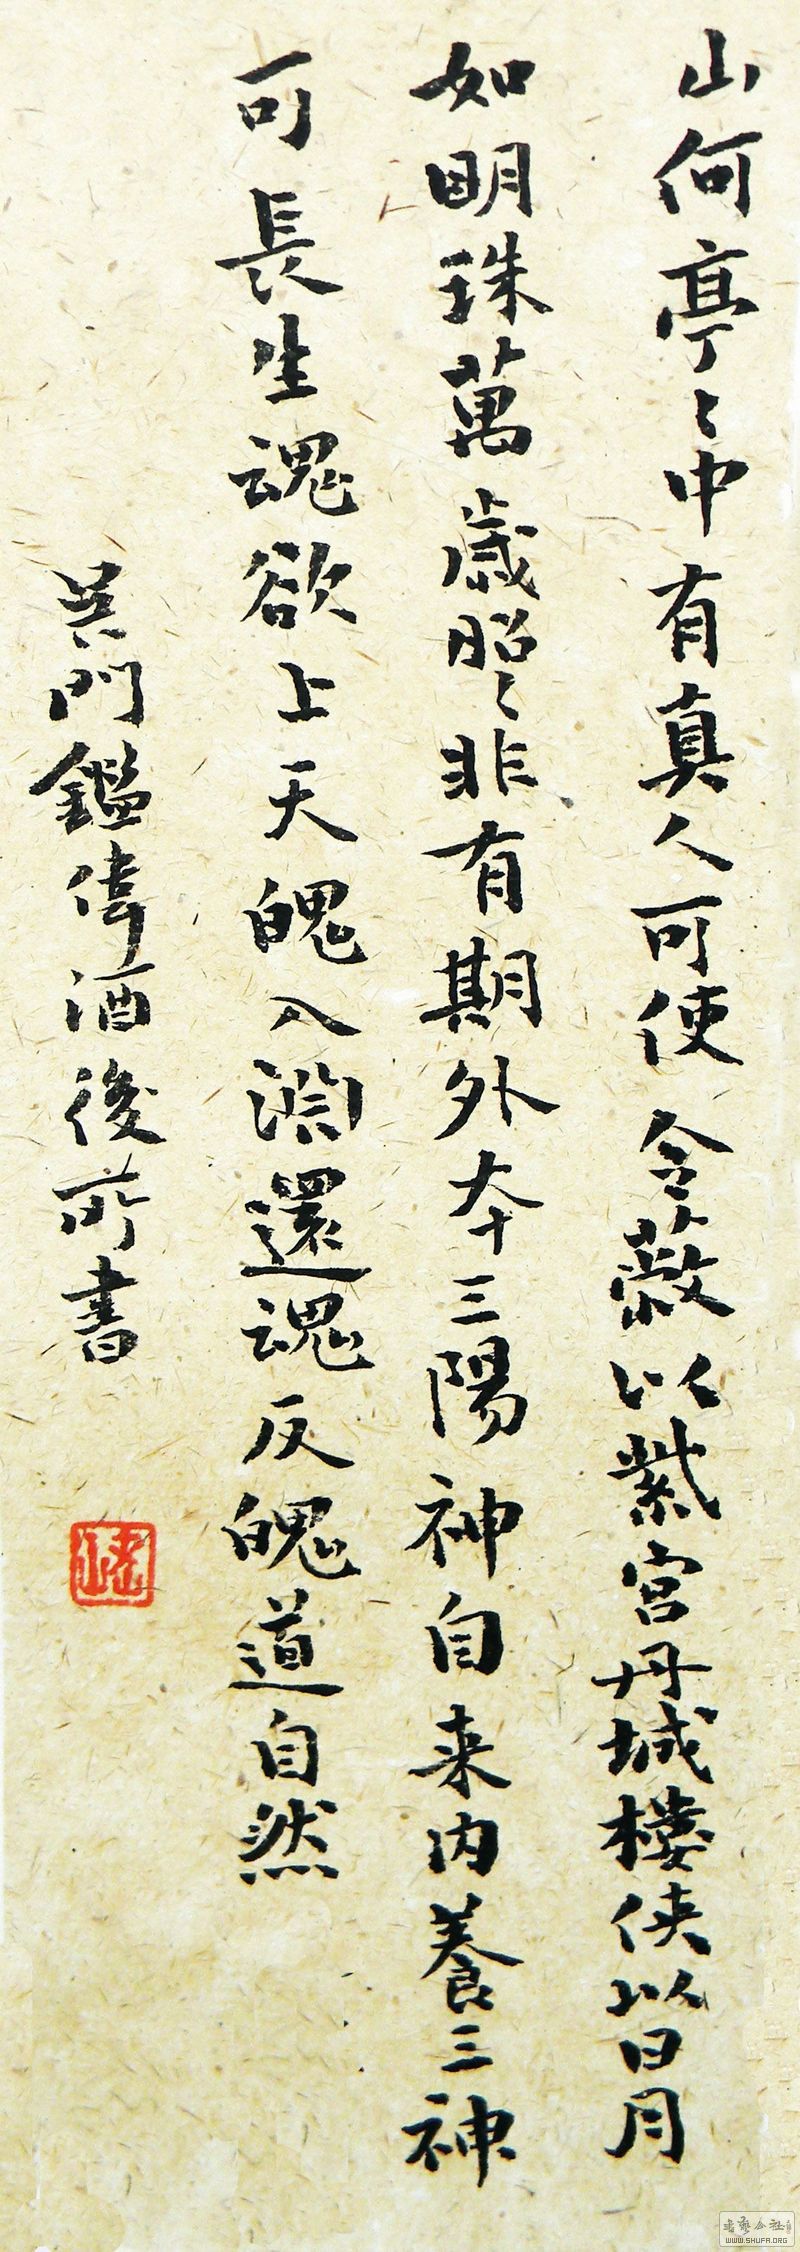 山何亭〻中有真人可使令蔽以紫宮丹城樓俠以日月
如明珠萬歲昭〻非有期外本三陽神自来内養三神
可長生魂欲上天魄入淵還魂反魄道自然
吴門鑑偉酒後所書
WWW.SHUFA.ORG